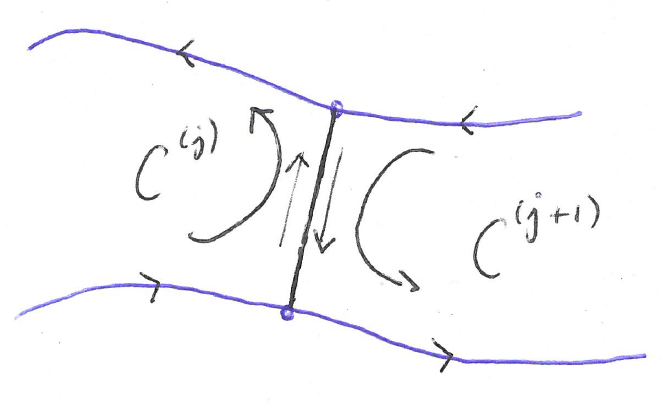 C^(j)
C^(j+1)